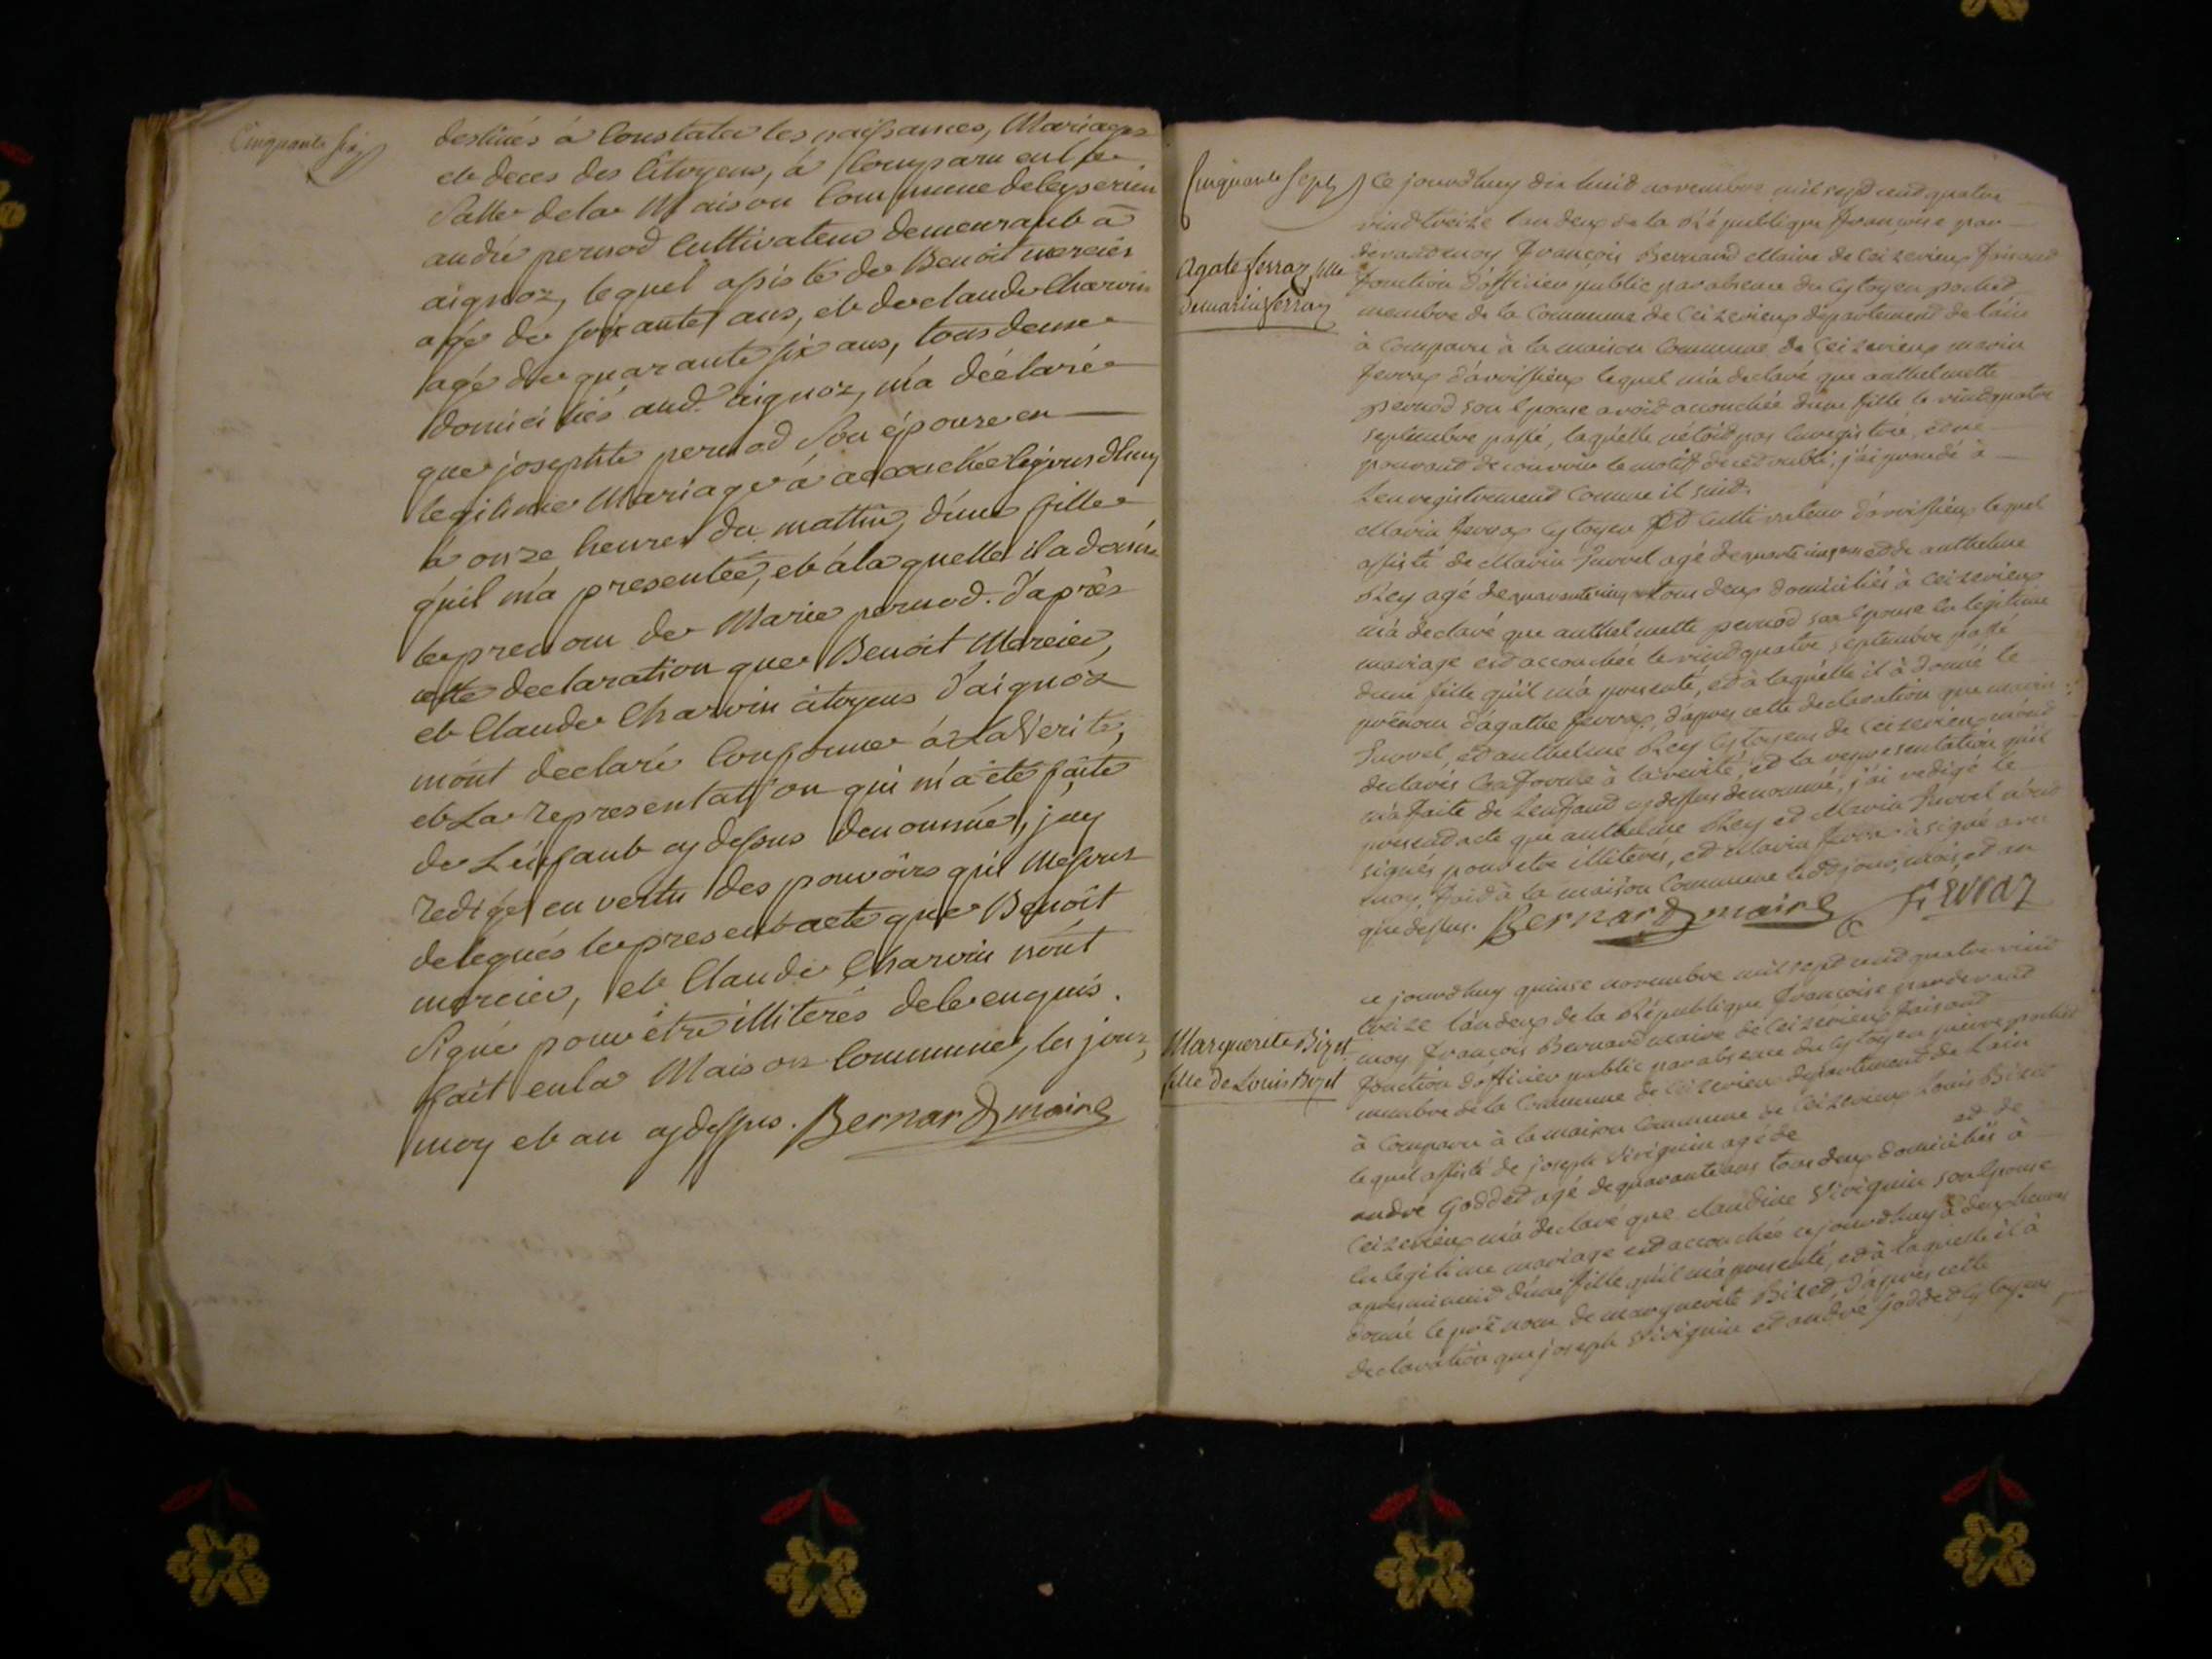 Cinquante six
destinés à Constater les naissances, Mariages
et deces des Citoyens, à Comparu en la
Salle de la Maison Commune de Ceyserieu
andré pernod Cultivateur demeurant à
aignoz, lequel assisté de Benoit mercier
agé de soixante ans, et de claude Charvin
agé de quarante six ans, tous deux
domiciliés aud. aignoz, m'a déclaré
que josephte pernod Son épouse en
legitime Mariage à accouchée le jourdhuy
à onze heures du mattin, d'une fille
qu'il m'a presentée, et à la quelle il a donné
le prenom de Marie pernod. d'après
cette declaration que Benoit Mercier,
et Claude Charvin citoyens d'aignoz
m'ont declaré Conforme à La Verité,
et La representation qui m'a été faite
de L'enfant cy dessus denommé, j'ay
redigé en vertu des pouvoirs qui me sont
delegués le present acte que Benoît
mercier, et Claude Charvin n'ont
Signé pour être illiterés de ce enquis.
fait en la Maison Commune, les jour,
moy et an cy dessus. Bernard maire
Cinquante Sept
Ce jourdhuy dix huid novembre mil sept cend quatre
vind treize l'an deux de la République françoise par
devand moy françois Bernard Maire de Ceizerieux faisand
fonction d'officier public par absence du Cytoyen pochet
membre de la Commune de Ceizerieux département de l'ain
à Comparu à la maison Commune de Ceizerieux marin
ferraz d'avrissieux lequel m'a declaré que anthelmette
pernod son Epouse avoid accouchée d'une fille le vind quatre
septembre passé, laquelle n'étoid pas Enregistrée, et ne
pouvand decouvrir le motif de ced oubli, j'ai procédé à
Lenregistremend Comme il suid.
Agate ferraz fille
de marin ferraz
Marin ferraz Cytoyen Cultivateur d'avrissieux lequel
assisté de Marin Furvel agé de ans et de anthelme
Rey agé de tous deux domiciliés à Ceizerieux
m'a declaré que anthelmette pernod sa Epouse En legitime
mariage est accouchée le vind quatre septembre passé
d'une fille qu'il m'a presenté, et à laquelle il à donné le
prénom d'agathe ferraz, d'apres cette declaration que marin
Furvel, et anthelme Rey Cytoyens de Ceizerieux m'ond
declarés Conforme à la verité, et la representation qu'il
m'a faite de Lenfand cy dessus denommé, j'ai redigé le
presend acte que anthelme Rey et Marin Furvel n'ond
signés pour etre illiterés, et Marin ferraz à signé avec
moy, faid à la maison Commune le dd jour, mois, et an
que dessus. Bernard maire Ferraz
Marguerite Bizet
fille de Louis Bizet
ce jourdhuy quinse novembre mil sept cend quatre vind
treize l'an deux de la République françoise pardevand
moy françois Bernard maire de Ceizerieux faisand
fonction d'officier public par absence du Cytoyen pierre pochet
membre de la Commune de Ceizerieux departement de Lain
à Comparu à la maison Commune de Ceizerieux Louis Bized
lequel assisté de joseph Vivignin agé de et de
andré Godded agé de quarante ans tous deux domiciliés à
Ceizerieux m'a declaré que claudine Vivignin son Epouse
En legitime mariage est accouchée ce jourdhuy à deux heures
apres minuid d'une fille qu'il m'a presenté, et à laquelle il à
donné le prénom de marguerite Bized, d'après cette
declaration que joseph Vivignin et andré Godded Cytoyens